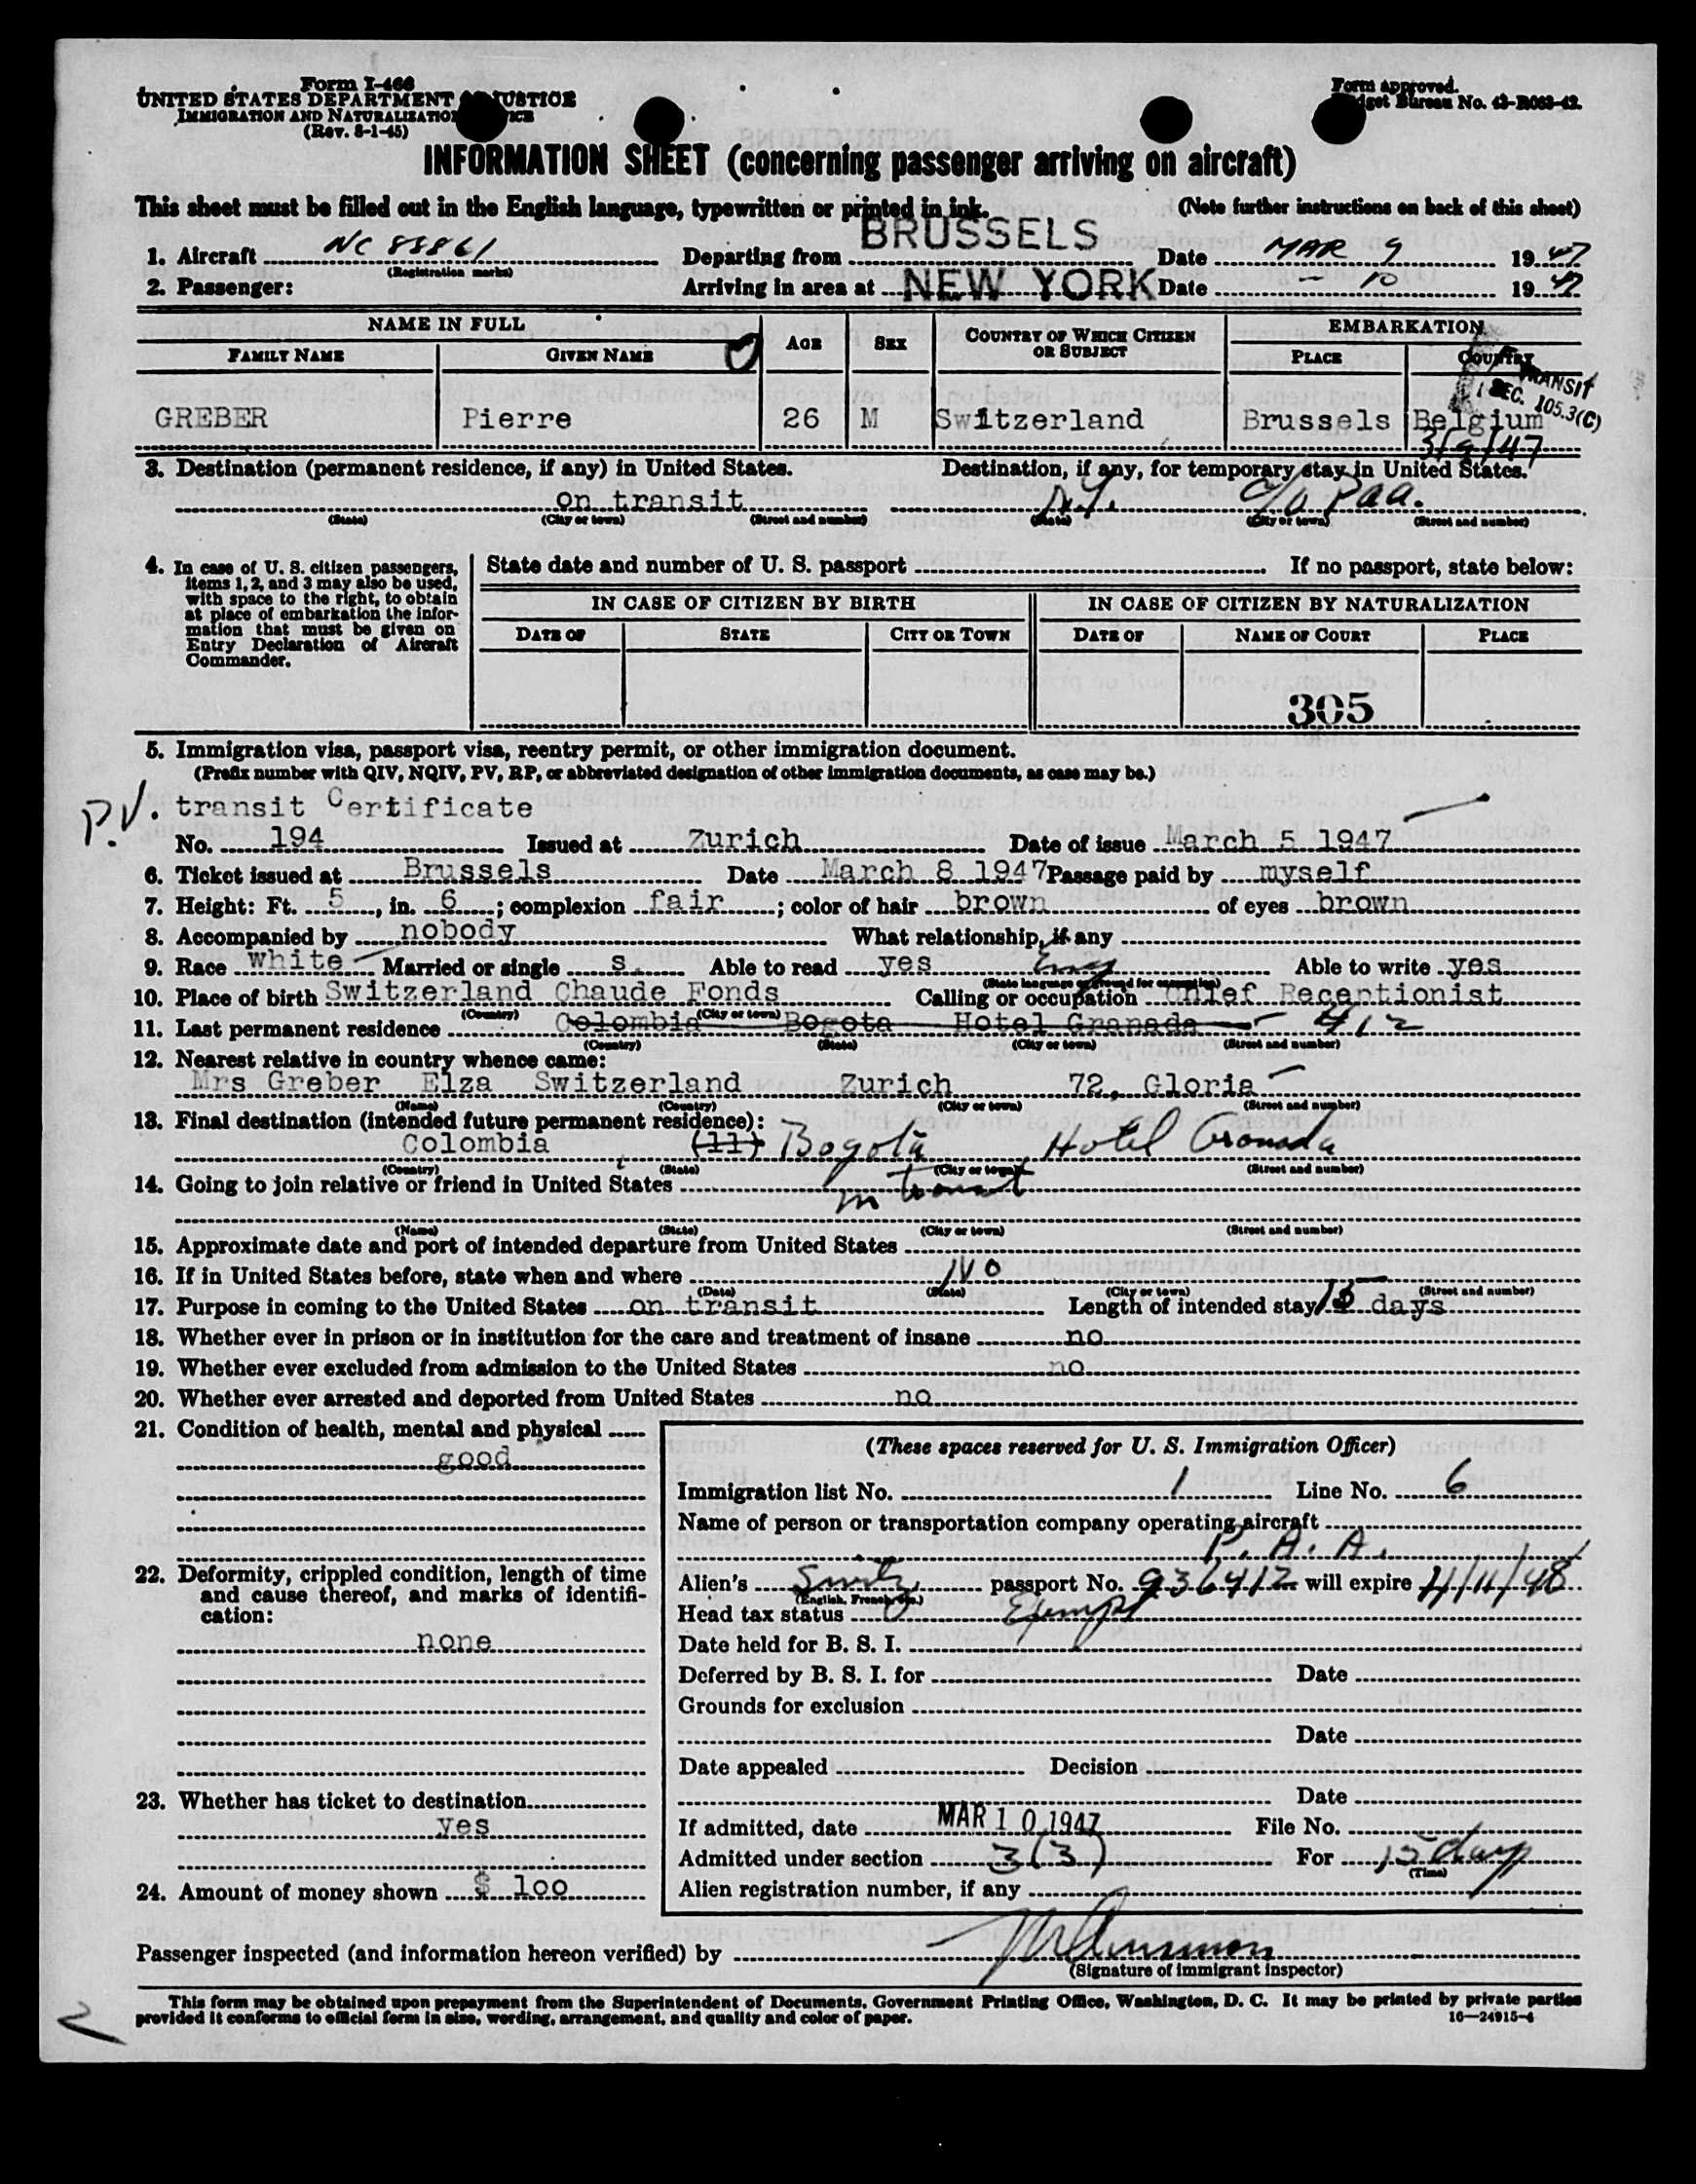 Form I-466
UNITED STATES DEPARTMENT JUSTICE
IMMIGRATION AND NATURALIZATION
(Rev. 8-1-45)
Form approved.
Budget Bureau No. 43-R063-42.
INFORMATION SHEET (concerning passenger arriving on aircraft)
This sheet must be filled out in the English language, typewritten or printed in ink. (Note further instructions on back of this sheet)
1. Aircraft NC 88861 Departing from BRUSSELS Date MAR 9 1947
(Registration marks)
2. Passenger: Arriving in area at NEW YORK Date - 10 1947
NAME IN FULL
FAMILY NAME GIVEN NAME AGE SEX COUNTRY OF WHICH CITIZEN OR SUBJECT EMBARKATION
PLACE COUNTRY
TRANSIT
SEC. 105.3(C)
GREBER Pierre 26 M Switzerland Brussels Belgium
3/9/47
3. Destination (permanent residence, if any) in United States. Destination, if any, for temporary stay in United States.
on transit N.Y. c/o Paa.
(State) (City or town) (Street and number) (State) (City or town) (Street and number)
4. In case of U. S. citizen passengers, items 1, 2, and 3 may also be used, with space to the right, to obtain at place of embarkation the information that must be given on Entry Declaration of Aircraft Commander.
State date and number of U. S. passport If no passport, state below:
IN CASE OF CITIZEN BY BIRTH IN CASE OF CITIZEN BY NATURALIZATION
DATE OF STATE CITY OR TOWN DATE OF NAME OF COURT PLACE
305
5. Immigration visa, passport visa, reentry permit, or other immigration document.
(Prefix number with QIV, NQIV, PV, RP, or abbreviated designation of other immigration documents, as case may be.)
P.V. transit Certificate
No. 194 Issued at Zurich Date of issue March 5 1947
6. Ticket issued at Brussels Date March 8 1947 Passage paid by myself
7. Height: Ft. 5, in. 6; complexion fair; color of hair brown of eyes brown
8. Accompanied by nobody What relationship, if any
9. Race white Married or single s. Able to read yes Eng Able to write yes
(State language or ground for exemption)
10. Place of birth Switzerland Chaude Fonds Calling or occupation Chief Receptionist
(Country) (City or town)
11. Last permanent residence Colombia Bogota Hotel Granada # 12
(Country) (State) (City or town) (Street and number)
12. Nearest relative in country whence came:
Mrs Greber Elza Switzerland Zurich 72, Gloria
(Name) (Country) (City or town) (Street and number)
13. Final destination (intended future permanent residence):
Colombia (11) Bogotá Hotel Granada
(Country) (State) (City or town) (Street and number)
14. Going to join relative or friend in United States in transit
(Name) (State) (City or town) (Street and number)
15. Approximate date and port of intended departure from United States
16. If in United States before, state when and where NO
(Date) (State) (City or town) (Street and number)
17. Purpose in coming to the United States on transit Length of intended stay 15 days
18. Whether ever in prison or in institution for the care and treatment of insane no
19. Whether ever excluded from admission to the United States no
20. Whether ever arrested and deported from United States no
21. Condition of health, mental and physical
good
22. Deformity, crippled condition, length of time and cause thereof, and marks of identification:
none
23. Whether has ticket to destination
yes
24. Amount of money shown $ 100
(These spaces reserved for U. S. Immigration Officer)
Immigration list No. 1 Line No. 6
Name of person or transportation company operating aircraft
P. A. A.
Alien's Switz passport No. 936412 will expire 4/11/48
(English, French, etc.)
Head tax status Exempt
Date held for B. S. I.
Deferred by B. S. I. for Date
Grounds for exclusion
Date
Date appealed Decision
Date
If admitted, date MAR 10 1947 File No.
Admitted under section 3(3) For 15 days
(Time)
Alien registration number, if any
Passenger inspected (and information hereon verified) by
(Signature of immigrant inspector)
This form may be obtained upon prepayment from the Superintendent of Documents, Government Printing Office, Washington, D. C. It may be printed by private parties
provided it conforms to official form in size, wording, arrangement, and quality and color of paper. 16—24915-4
2